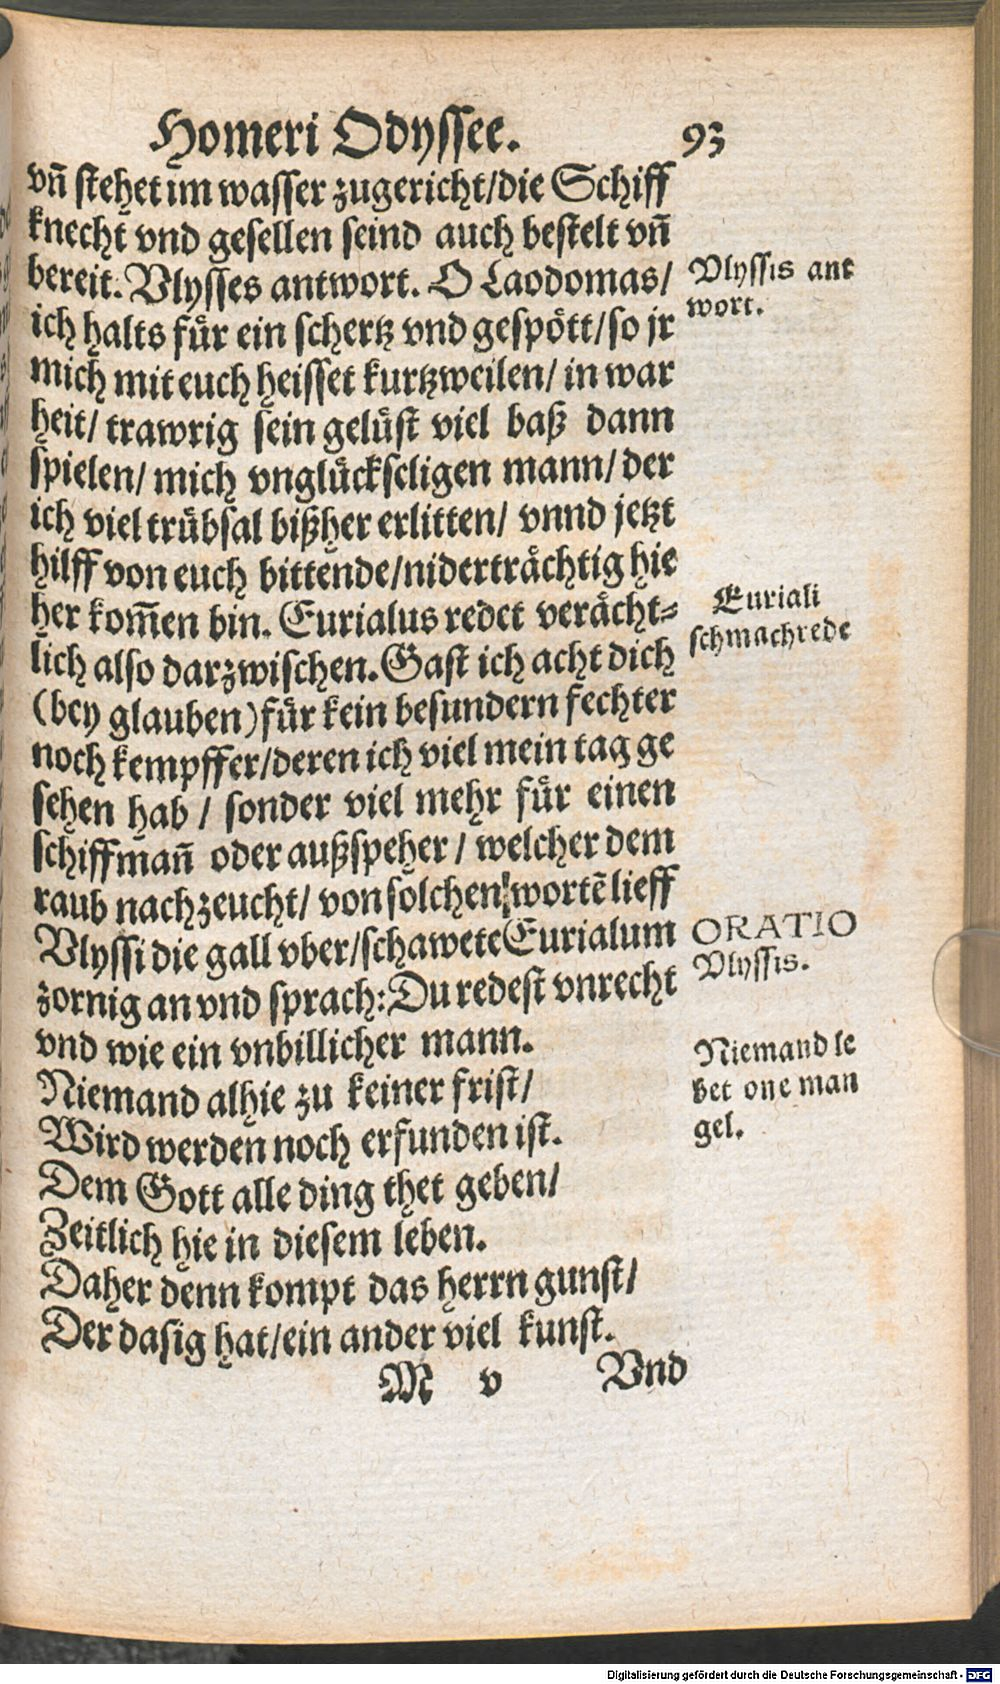 Homeri Odyssee. 93
vñ stehet im wasser zugericht/die Schiff
knecht vnd gesellen seind auch bestelt vñ
bereit. Vlysses antwort. O Laodomas/
ich halts fuͤr ein schertz vnd gespoͤtt/so jr
mich mit euch heisset kurtzweilen/ in war
heit/ trawrig sein geluͤst viel baß dann
spielen/ mich vngluͤckseligen mann/ der
ich viel truͤbsal bißher erlitten/ vnnd jetzt
hilff von euch bittende/nidertraͤchtig hie
her kom̃en bin. Eurialus redet veraͤcht⸗
lich also darzwischen. Gast ich acht dich
(bey glauben) fuͤr kein besundern fechter
noch kempffer/deren ich viel mein tag ge
sehen hab / sonder viel mehr fuͤr einen
schiffmañ oder außspeher / welcher dem
raub nachzeucht/ von solchen wortẽ lieff
Vlyssi die gall vber/schawete Eurialum
zornig an vnd sprach: Du redest vnrecht
vnd wie ein vnbillicher mann.
Niemand alhie zu keiner frist/
Wird werden noch erfunden ist.
Dem Gott alle ding thet geben/
Zeitlich hie in diesem leben.
Daher denn kompt das herrn gunst/
Der dasig hat/ein ander viel kunst.
M v Vnd
Vlyssis ant
wort.
Euriali
schmachrede
ORATIO
Vlyssis.
Niemand le
bet one man
gel.
Digitalisierung gefördert durch die Deutsche Forschungsgemeinschaft - DFG